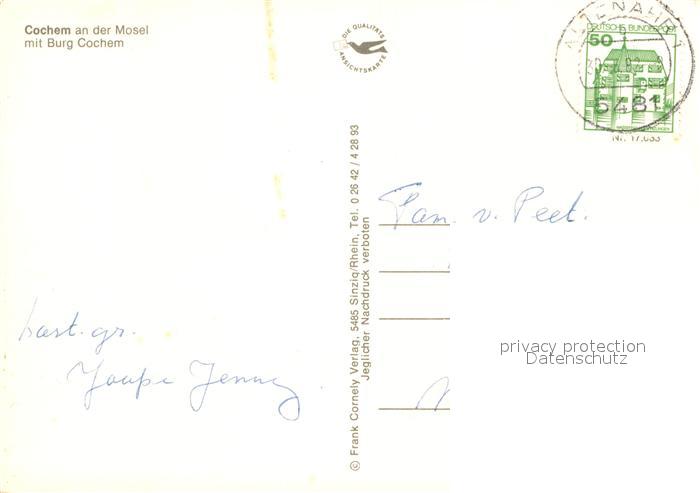 Cochem an der Mosel
mit Burg Cochem
DIE QUALITÄTS
ANSICHTSKARTE
ALTENAHR 1
5481
DEUTSCHE BUNDESPOST
50
Nr. 17.033
© Frank Cornely Verlag, 5485 Sinzig/Rhein, Tel. 0 26 42 / 4 28 93
Jeglicher Nachdruck verboten
Fam. v. Peet.
gr.
Jaap Jenny
privacy protection
Datenschutz